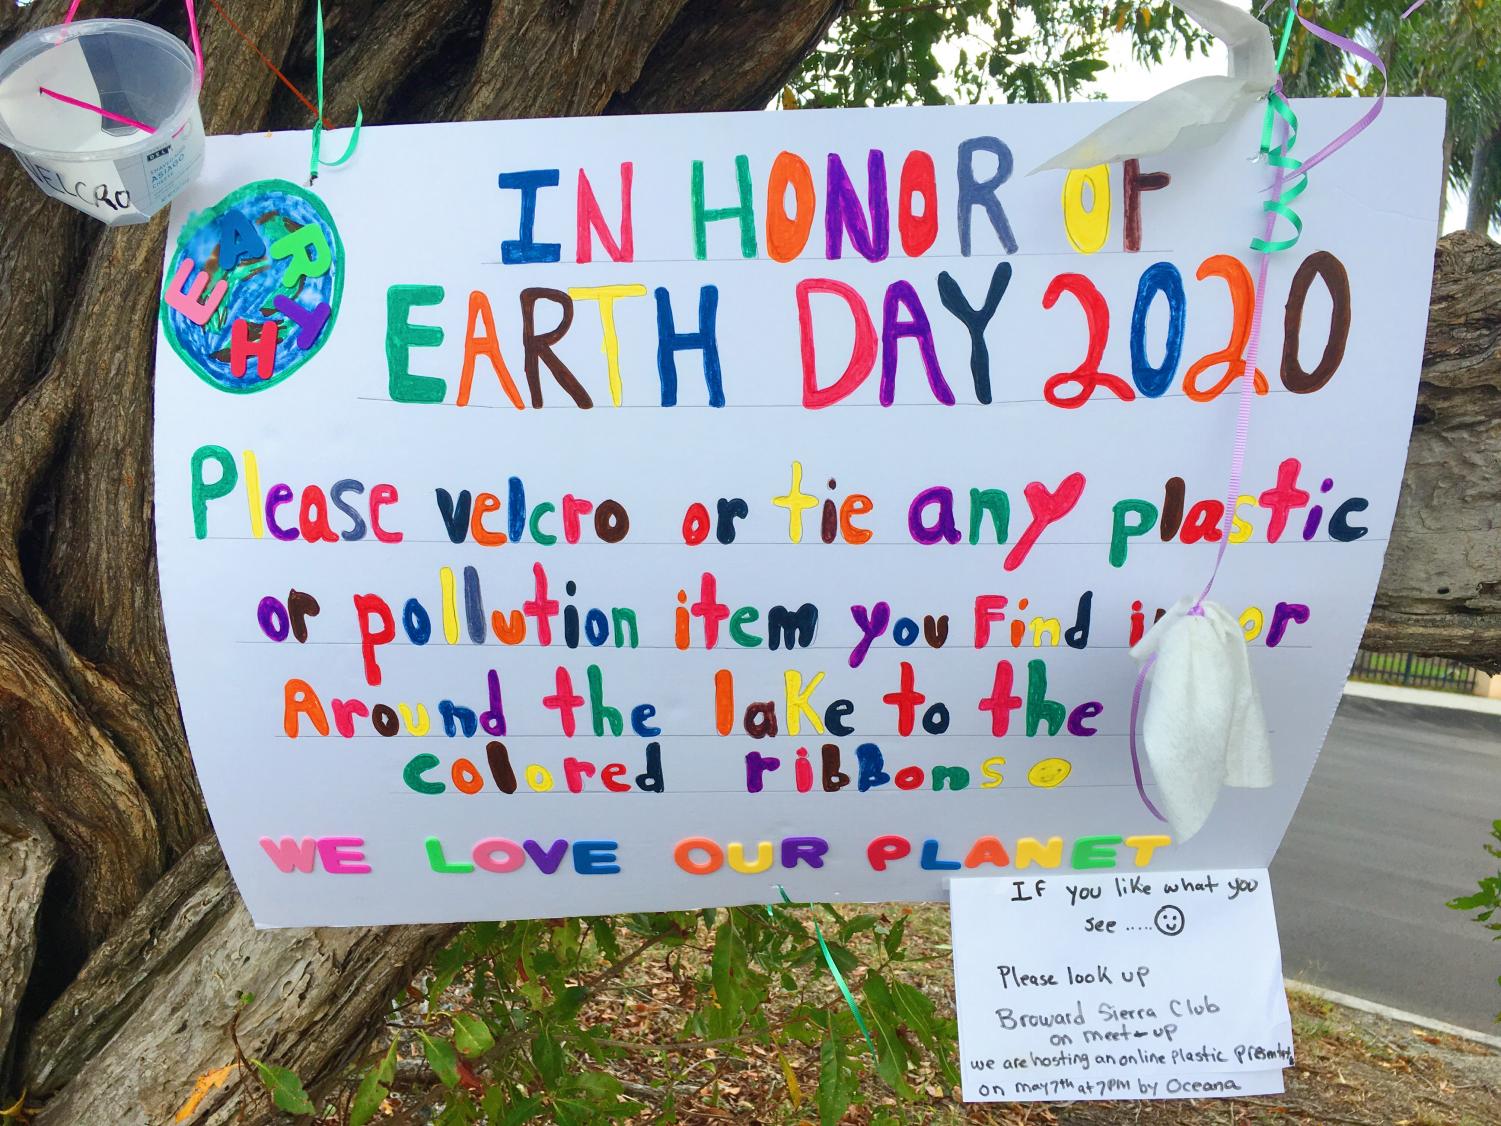 VELCRO
DELI
SHAVED
ASIAGO
CHEESE
EARTH
IN HONOR OF
EARTH DAY 2020
Please velcro or tie any plastic
or pollution item you Find in or
Around the lake to the
colored ribbons
WE LOVE OUR PLANET
IF you like what you
see .....
Please look up
Broward Sierra Club
on meet-up
we are hosting an online plastic
on may 7th at 7PM by Oceana